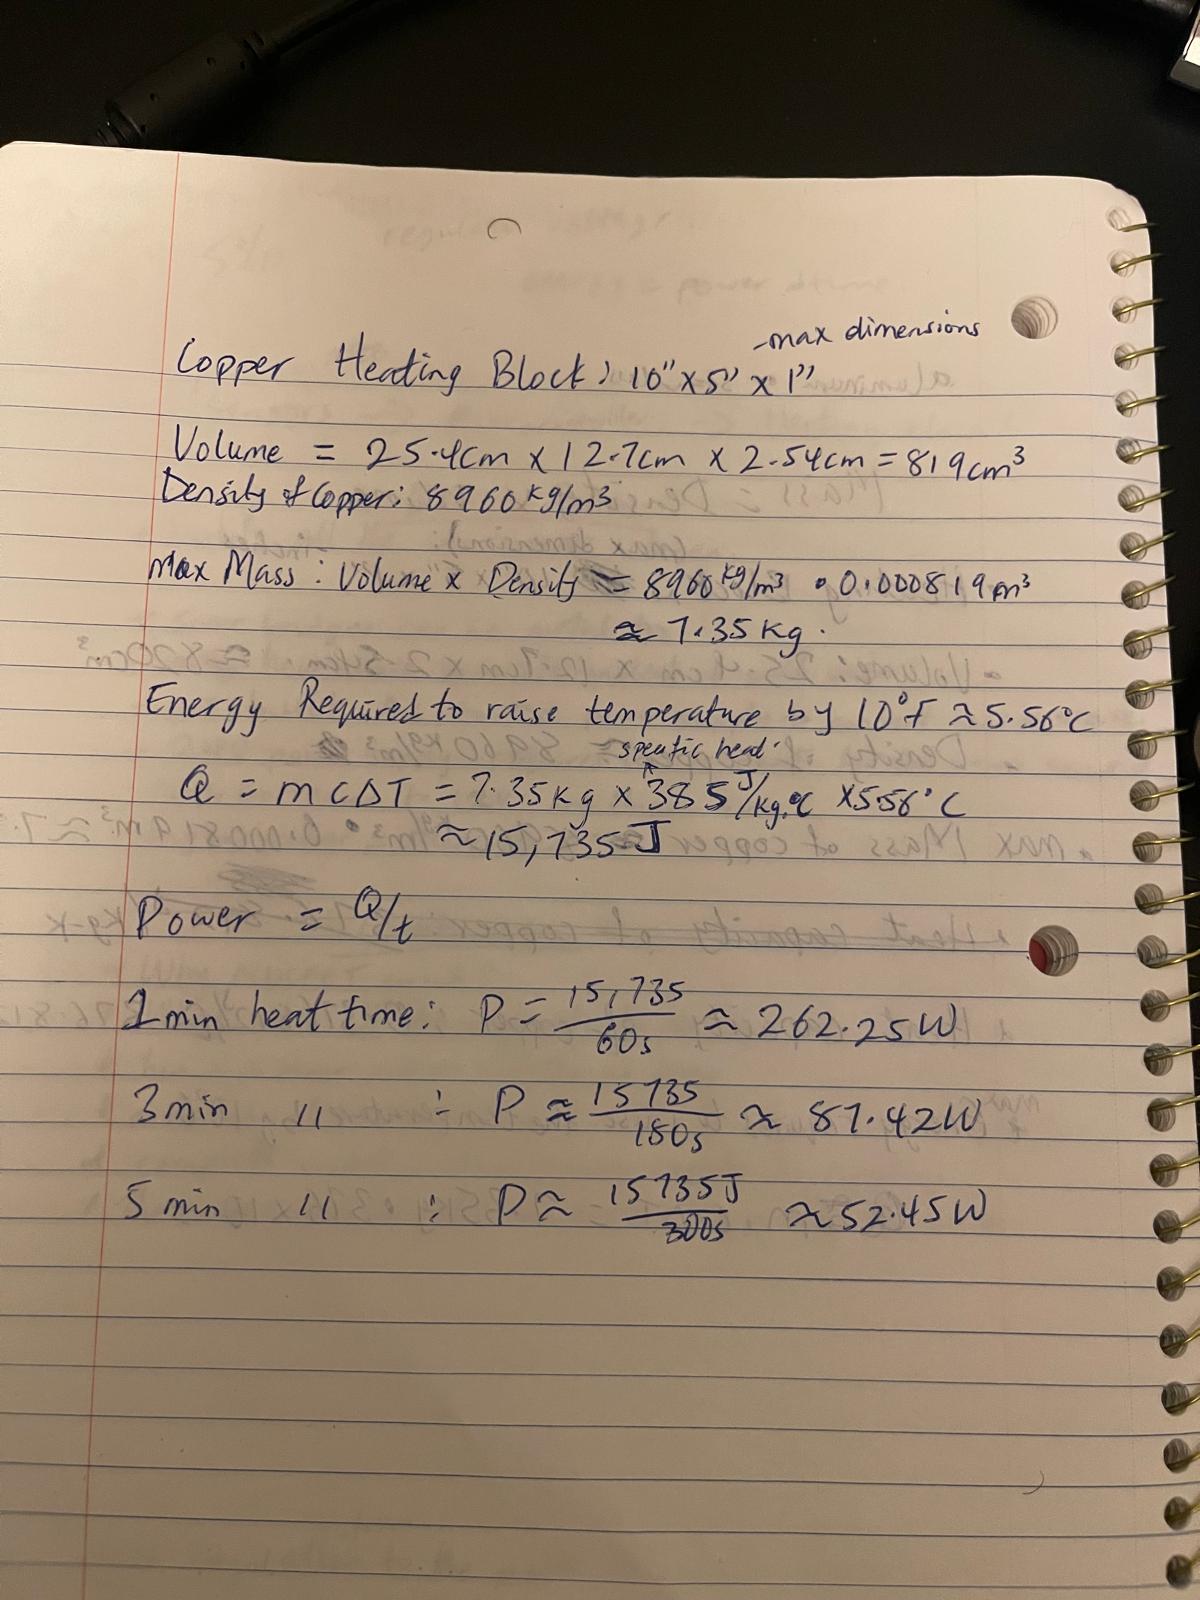 -max dimensions
Copper Heating Block: 10" x 5" x 1"
Volume = 25.4cm x 12.7cm x 2.54cm = 819cm³
Density of Copper: 8960 kg/m³
Max Mass: Volume x Density = 8960 kg/m³ • 0.000819 m³
≈ 7.35 kg.
Energy Required to raise temperature by 10°F ≈ 5.56°C
specific heat.
Q = mcΔT = 7.35kg x 385 J/kg.°C x 5.56°C
≈ 15,735 J
Power = Q/t
1 min heat time: P = 15,735/60s ≈ 262.25W
3 min " : P ≈ 15735/180s ≈ 87.42W
5 min " : P ≈ 15735J/300s ≈ 52.45W